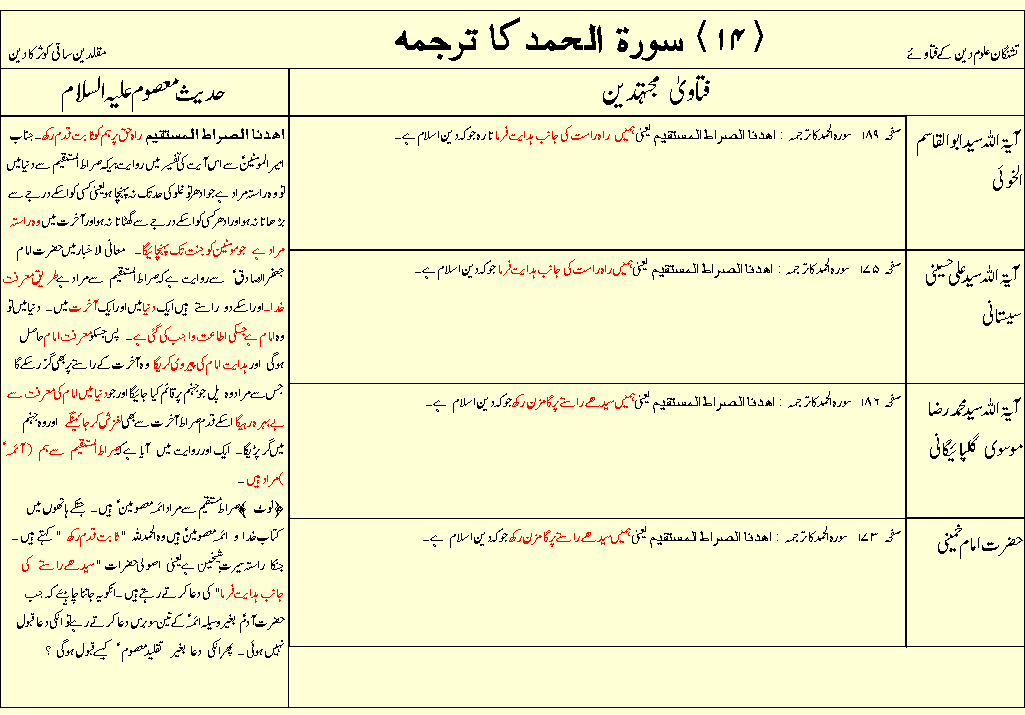 تشنگان علوم دین کے فتاوے
(۱۴) سورۃ الحمد کا ترجمہ
مقلدین ساقی کوثر کا دین
فتاویٰ مجتہدین
حدیث معصوم علیہ السلام
آیۃ اللہ سید ابوالقاسم
الخوئی
صفحہ ۱۸۹ سورہ الحمد کا ترجمہ : اهدنا الصراط المستقیم یعنی ہمیں راہ راست کی جانب ہدایت فرماتا رہ جو کہ دین اسلام ہے۔
آیۃ اللہ سید علی حسینی
سیستانی
صفحہ ۱۷۵ سورہ الحمد کا ترجمہ : اهدنا الصراط المستقیم یعنی ہمیں راہ راست کی جانب ہدایت فرما جو کہ دین اسلام ہے۔
آیۃ اللہ سید محمد رضا
موسوی گلپائیگانی
صفحہ ۱۸۶ سورہ الحمد کا ترجمہ : اهدنا الصراط المستقیم یعنی ہمیں سیدھے راستے پر گامزن رکھ جو کہ دین اسلام ہے۔
حضرت امام خمینی
صفحہ ۱۷۳ سورہ الحمد کا ترجمہ : اهدنا الصراط المستقیم یعنی ہمیں سیدھے راستے پر گامزن رکھ جو کہ دین اسلام ہے۔
اهدنا الصراط المستقیم راہ حق پر ہم کو ثابت قدم رکھ۔ جناب
امیر المومنینؑ سے اس آیت کی تفسیر میں روایت ہیکہ صراط المستقیم سے دنیا میں
تو وہ راستہ مراد ہے جو ادھر تو غلو کی حد تک نہ پہنچا ہو یعنی کسی کو اسکے درجے سے
بڑھاتا نہ ہو اور ادھر کسی کو اسکے درجے سے گھٹاتا نہ ہو اور آخرت میں وہ راستہ
مراد ہے جو مومنین کو جنت تک پہنچائیگا۔ معانی الاخبار میں حضرت امام
جعفر الصادقؑ سے روایت ہے کہ صراط المستقیم سے مراد ہے طریق معرفت
خدا۔ اور اسکے دو راستے ہیں ایک دنیا میں اور ایک آخرت میں۔ دنیا میں تو
وہ امام ہے جسکی اطاعت واجب کی گئی ہے۔ پس جسکو معرفت امام حاصل
ہوگی اور ہدایت امام کی پیروی کریگا وہ آخرت کے راستے پر بھی گزر سکے گا
جس سے مراد وہ پل جو جہنم پر قائم کیا جائیگا اور جو دنیا میں امام کی معرفت سے
بے بہرہ رہیگا اسکے قدم صراط آخرت سے بھی لغزش کر جائینگے اور وہ جہنم
میں گر پڑیگا۔ ایک اور روایت میں آیا ہے کہ صراط المستقیم سے ہم (آئمہؑ
) مراد ہیں۔
﴿نوٹ﴾ صراط مستقیم سے مراد ائمہ معصومینؑ ہیں۔ جنکے ہاتھوں میں
کتاب خدا و ائمہ معصومینؑ ہیں وہ الحمد للہ "ثابت قدم رکھ" کہتے ہیں۔
جنکا راستہ سیرت شیخین ہے یعنی اصولی حضرات "سیدھے راستے کی
جانب ہدایت فرما" کی دعا کرتے رہتے ہیں۔ انکو یہ جاننا چاہیئے کہ جب
حضرت آدمؑ بغیر وسیلہ ائمہؑ کے تین سو برس دعا کرتے رہے تو انکی دعا قبول
نہیں ہوئی۔ پھر انکی دعا بغیر تقلید معصومؑ کیسے قبول ہوگی ؟